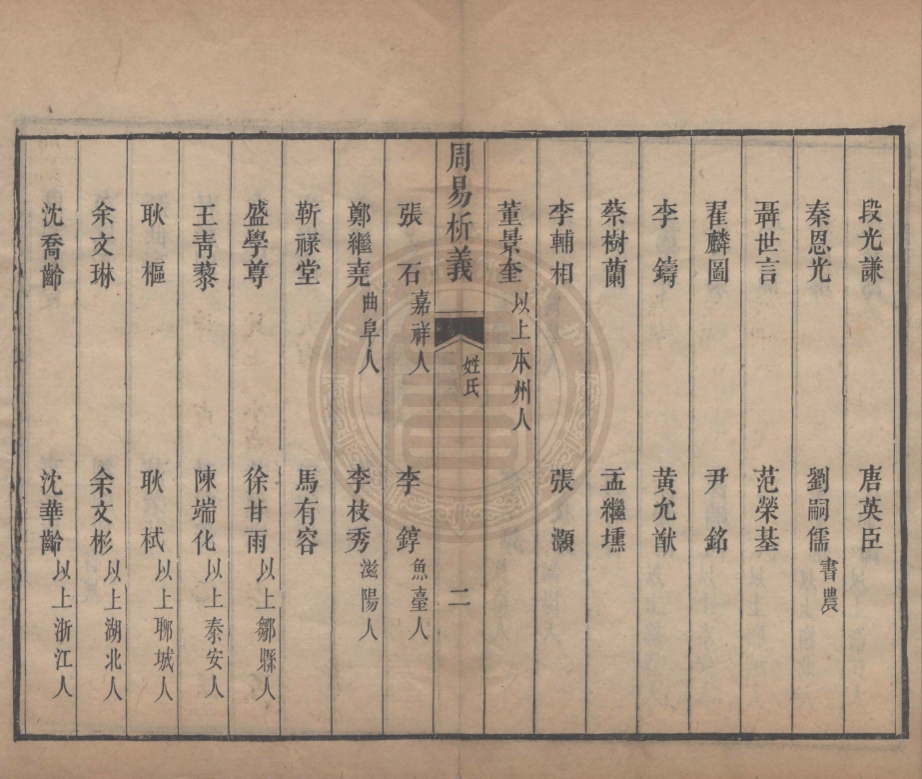 段光謙 唐英臣
秦恩光 劉嗣儒 書農
聶世言 范榮基
翟麟圖 尹銘
李鑄 黃允猷
蔡樹蘭 孟繼壎
李輔相 張灝
董景奎 以上本州人
周易析義 姓氏 二
張石 嘉祥人 李錞 魚臺人
鄭繼堯 曲阜人 李枝秀 滋陽人
靳祿堂 馬有容
盛學尊 徐甘雨 以上鄒縣人
王青藜 陳端化 以上泰安人
耿樞 耿栻 以上聊城人
余文琳 余文彬 以上湖北人
沈喬齡 沈華齡 以上浙江人